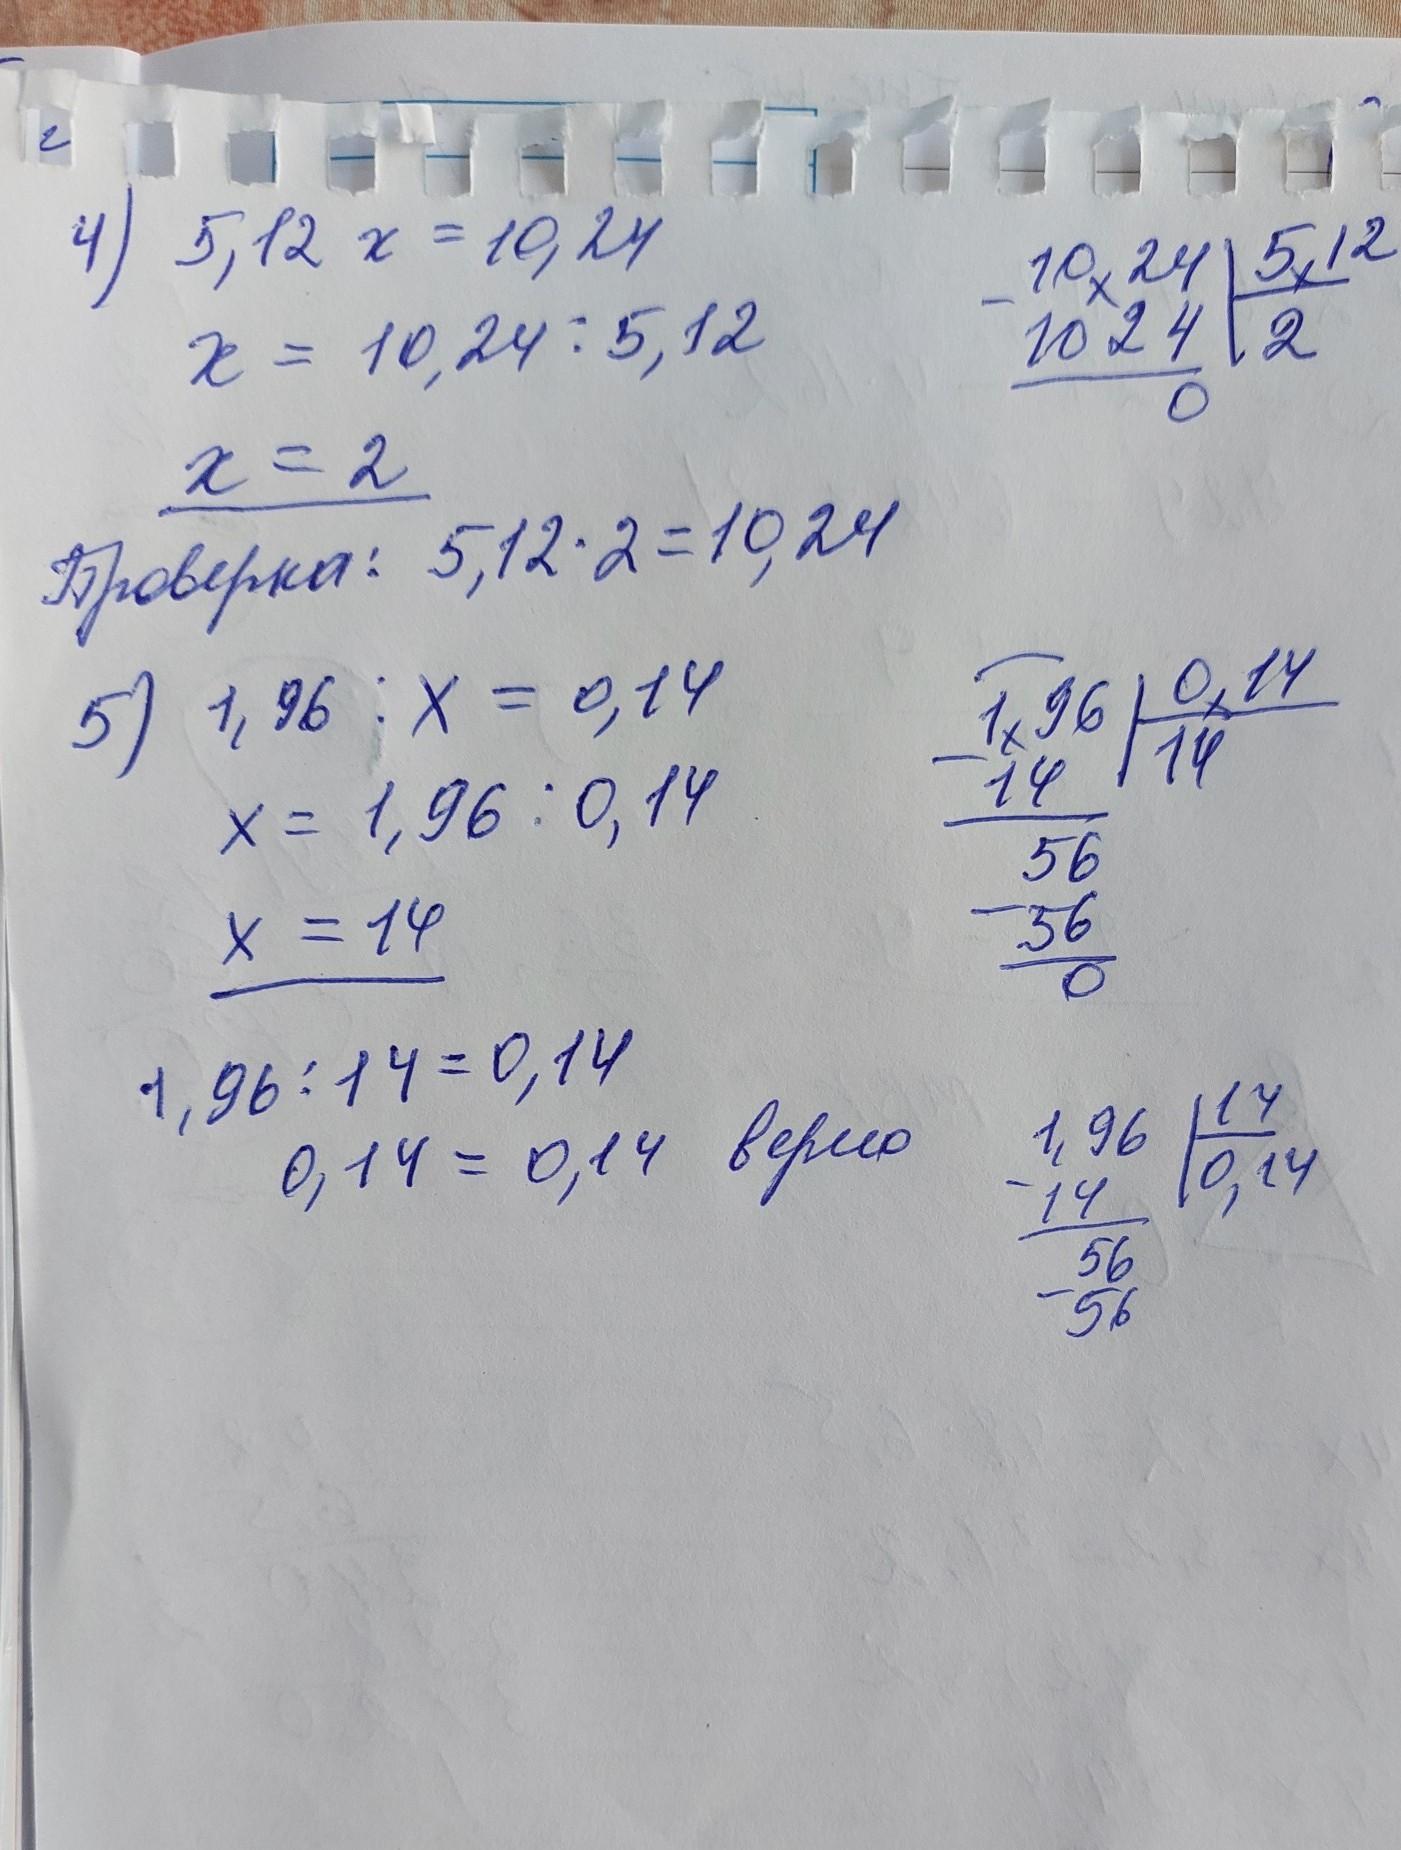 4) 5,12 x = 10,24
x = 10,24 : 5,12
x = 2
Проверка: 5,12 · 2 = 10,24
10,24 | 5,12
- 1024 | 2
0
5) 1,96 : x = 0,14
x = 1,96 : 0,14
x = 14
1,96 | 0,14
- 14 | 14
56
- 56
0
1,96 : 14 = 0,14
0,14 = 0,14 верно
1,96 | 14
- 14 | 0,14
56
- 56